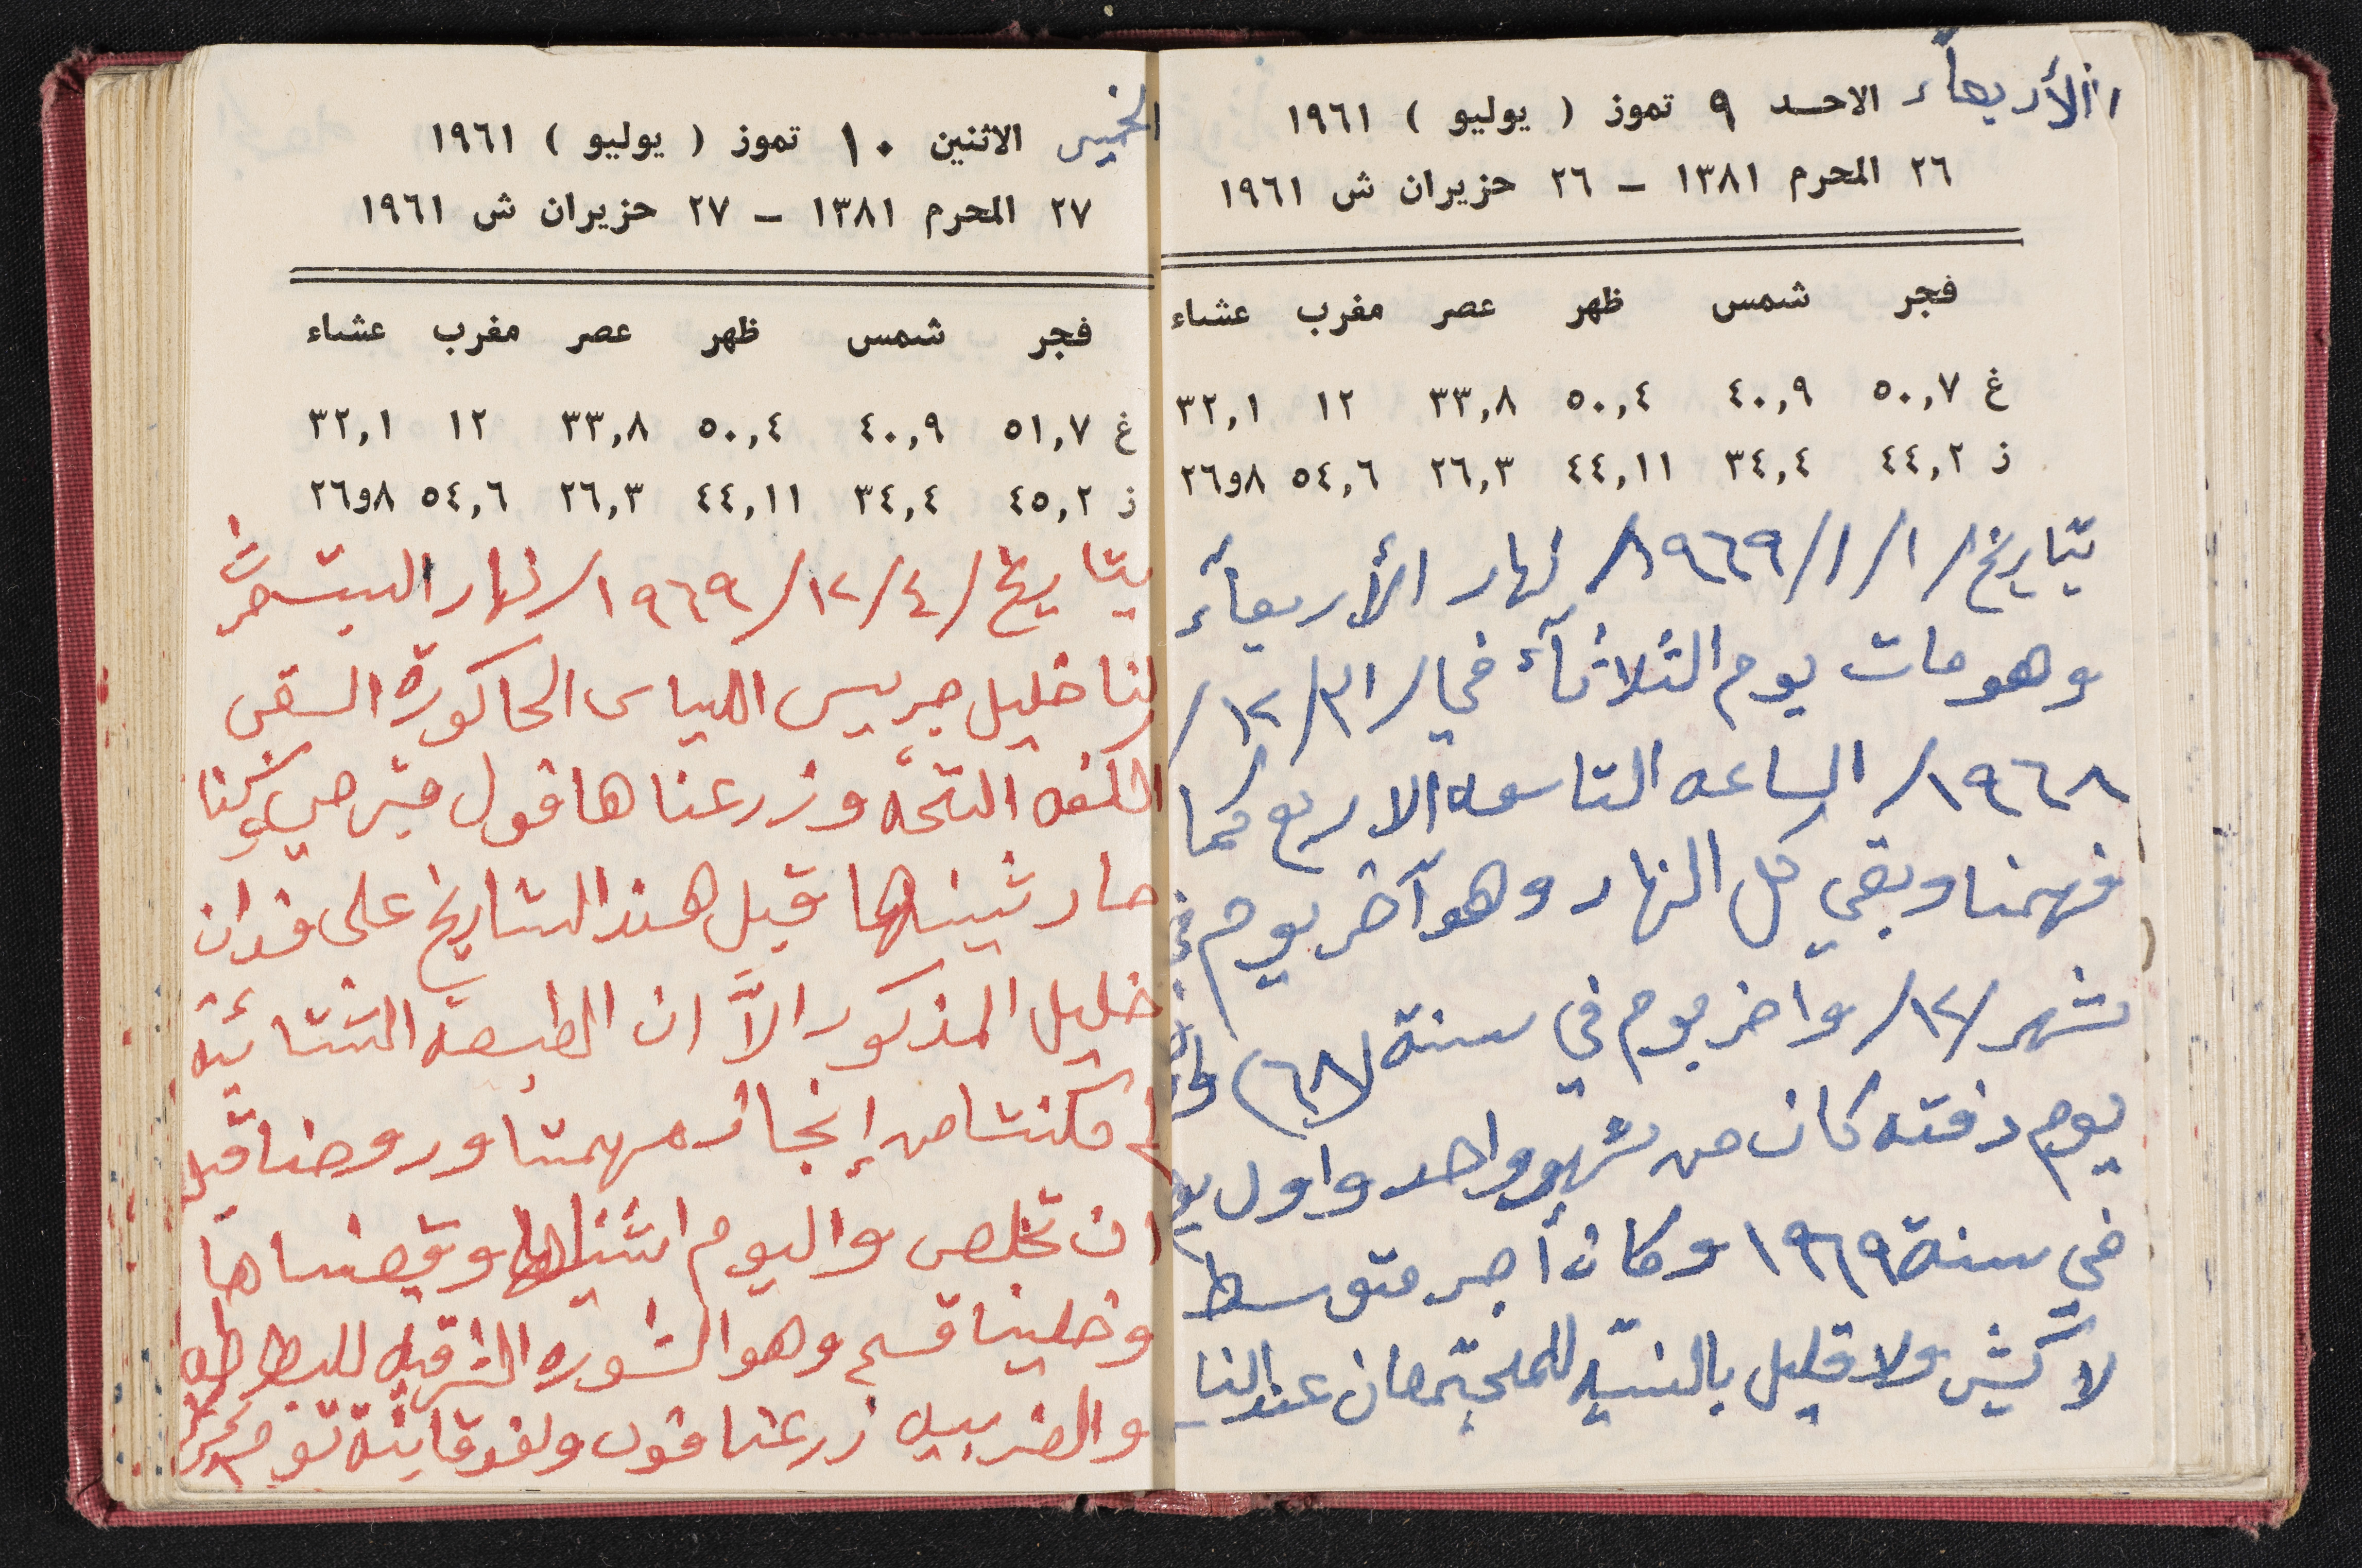 الأربعاء الاحد ٩ تموز ( يوليو ) ١٩٦١
٢٦ المحرم ١٣٨١ – ٢٦ حزيران ش ١٩٦١
فجر شمس ظهر عصر مغرب عشاء
غ ٥٠,٧ ٤٠,٩ ٥٠,٤ ٣٣,٨ ١٢ ٣٢,١
ز ٤٤,٢ ٣٤,٤ ٤٤,١١ ٢٦,٣ ٥٤,٦ ٨و٢٦
بتاريخ /١/١/١٩٦٩/ نهار الأربعآء
وهو مات يوم الثلاثآء في /٣١/١٢/
١٩٦٨/ الساعه التاسعه الا ربع كما
فهمنا وبقي كل النهار وهو آخر يوم في
شهر /١٢/ وآخر يوم في سنة (٦٨)
يوم دفته كان من شهر واحد واول يو
في سنة ١٩٦٩ وكان أجر متوسط
لا كثير ولا قليل بالنسبه للملحتمعان عند النا
الخميس الاثنين ١٠ تموز ( يوليو ) ١٩٦١
٢٧ المحرم ١٣٨١ – ٢٧ حزيران ش ١٩٦١
فجر شمس ظهر عصر مغرب عشاء
غ ٥١,٧ ٤٠,٩ ٥٠,٤ ٣٣,٨ ١٢ ٣٢,١
ز ٤٥,٢ ٣٤,٤ ٤٤,١١ ٢٦,٣ ٥٤,٦ ٨و٢٦
بتاريخ /٤/١٢/١٩٦٩/ نهار السبت حرث
لنا خليل جريس الياس الحاكورة السقي
التحته وزرعناها فول وكنا
حارثينها قبل هذا التاريخ على فدان
خليل المذكور الاَّ ان الطبيعة الشتائية
لم مكنتنا من إنجاز مهمتنا وروحنا قبل
ان تخلص واليوم اثنيناها وقضيناها
وخلينا قسم وهو الشوره الشرقيه للبطاطه
والغربيه زرعنا فول